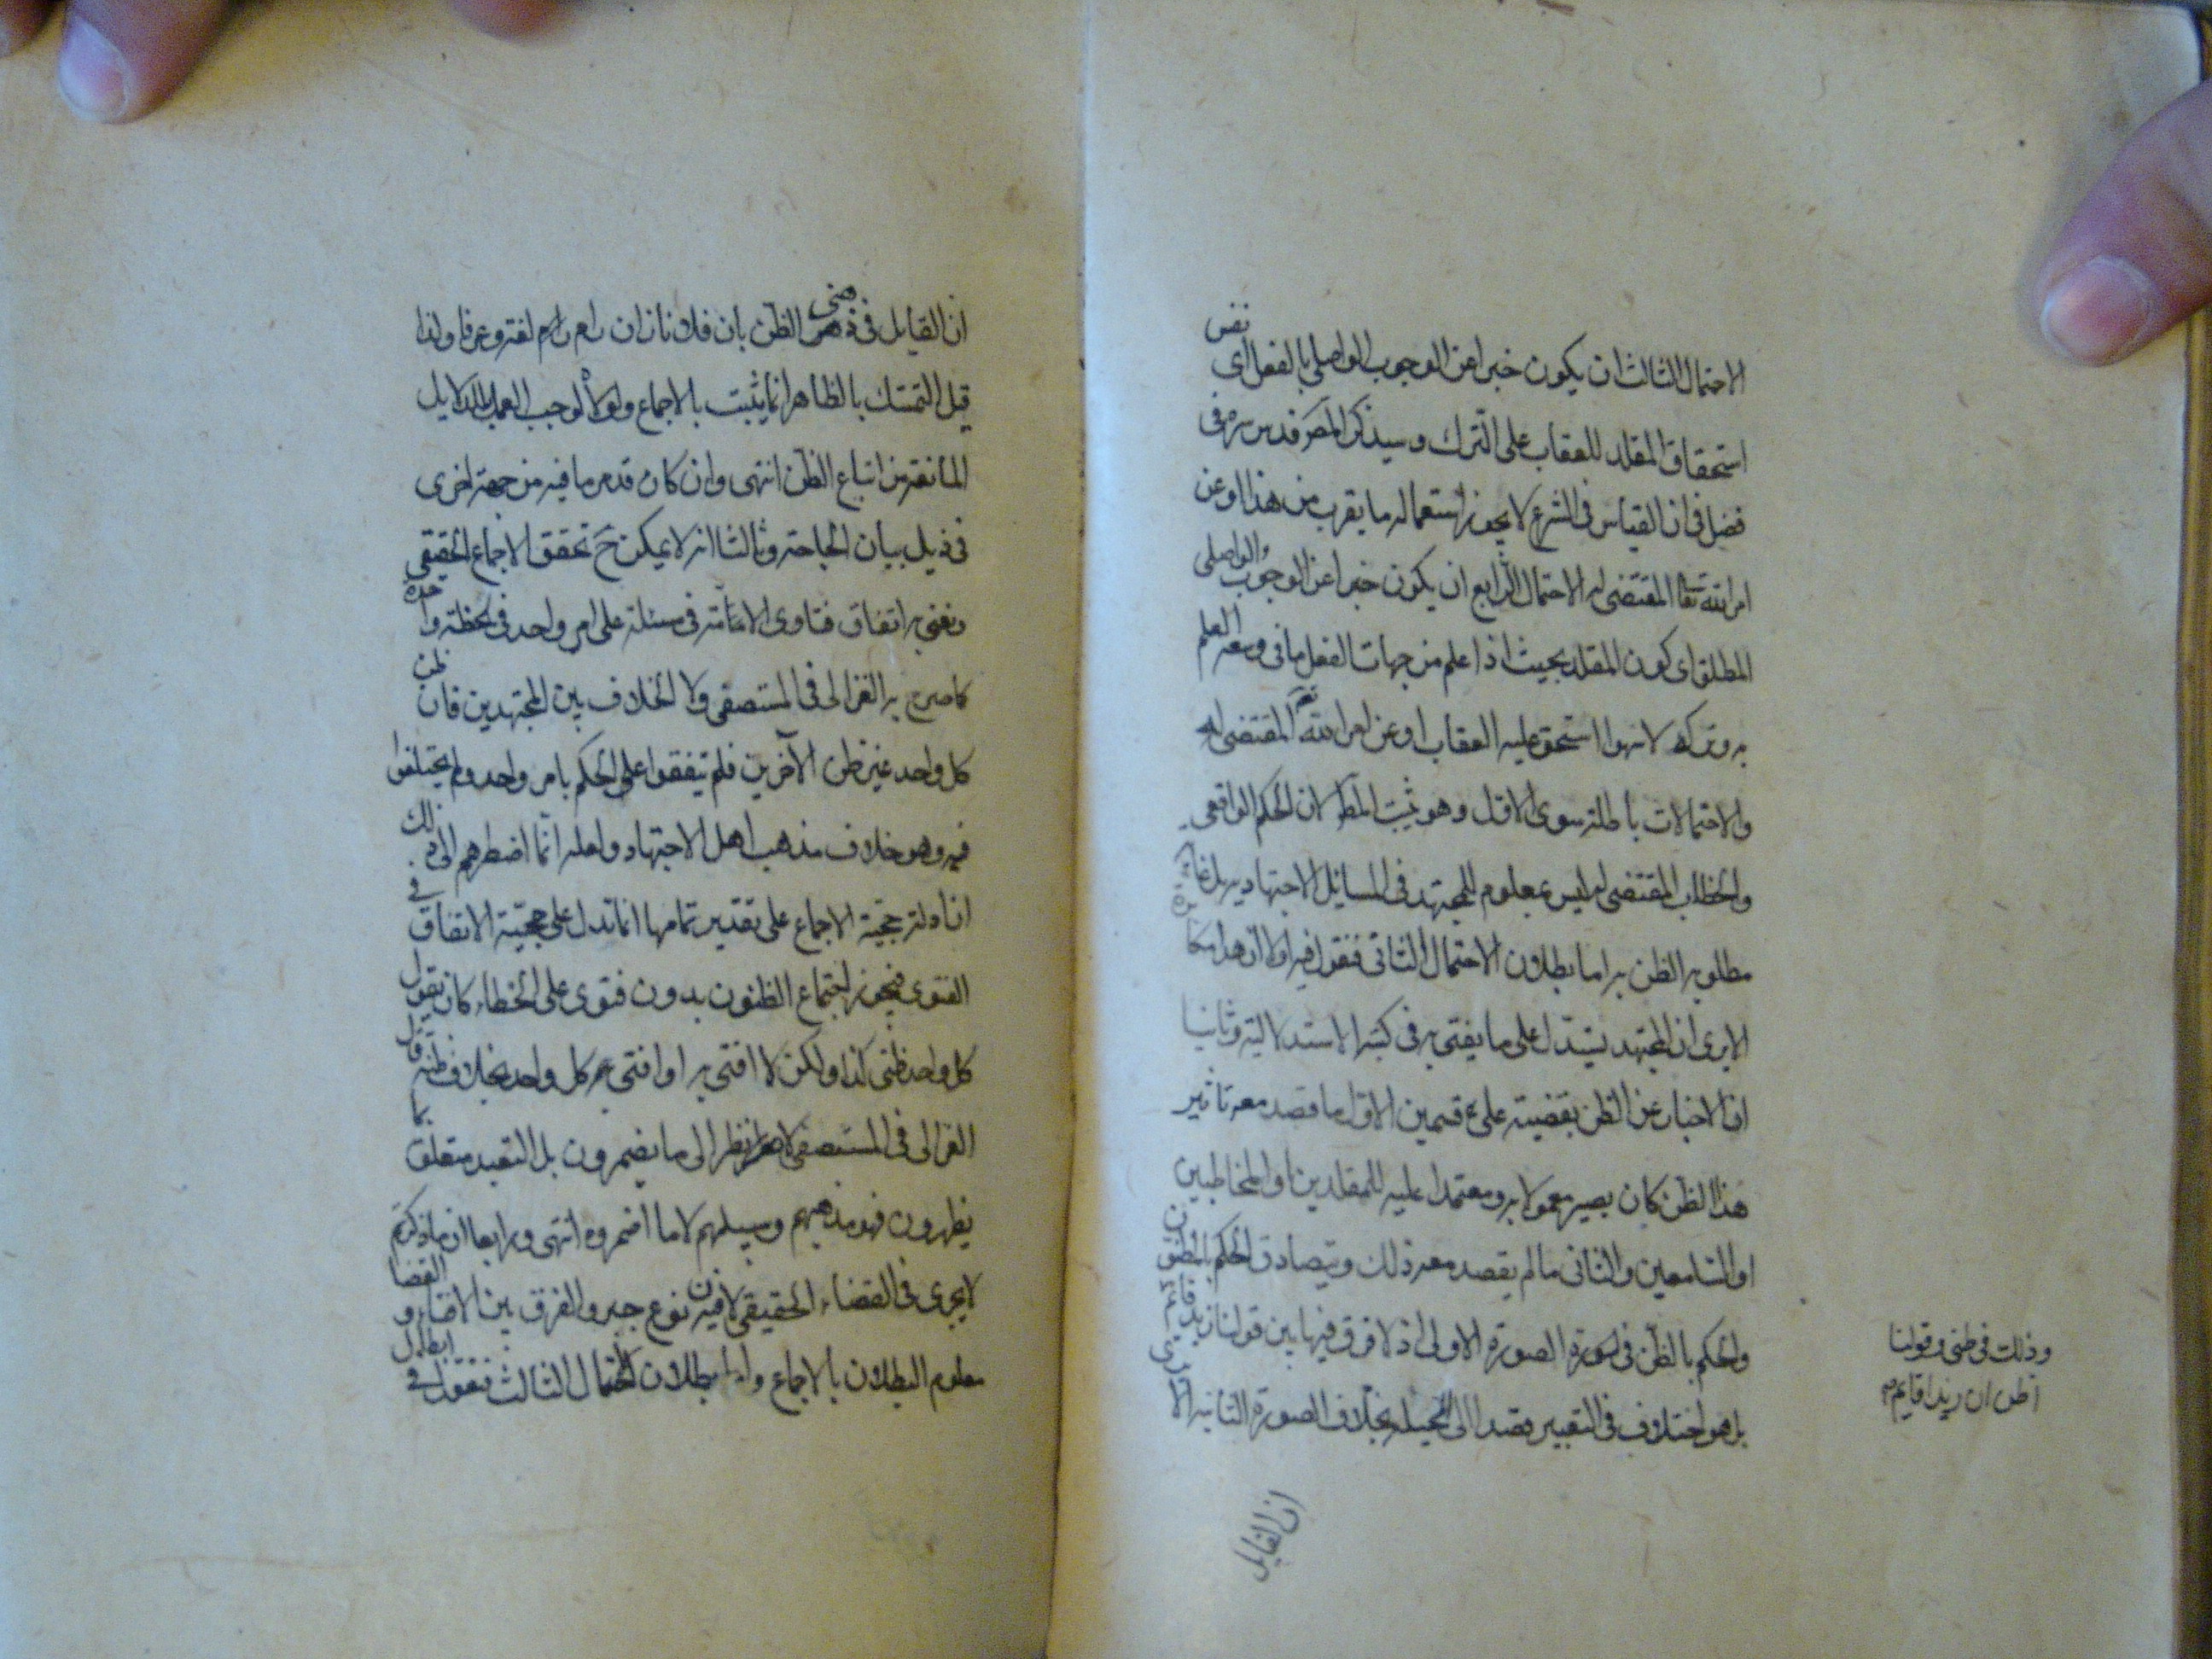 الاحتمال الثالث ان يكون خبرا عن الوجوب الواصلي بالفعل اى نفس
استحقاق المقلد للعقاب على الترك وسيذكر المص قدس سره فى
فصل فى ان القياس فى الشرع لا يجوز استعماله ما يقرب من هذا او عن
امر الله تعا المقتضى له الاحتمال الرابع ان يكون خبرا عن الوجوب الواصلى
المطلق اى كون المقلد بحيث اذا علم من جهات الفعل ما فى وسعه العلم
به وتركه لا سهوا استحق عليه العقاب او عن امر الله تعه المقتضى له
والاحتمالات باطلة سوى الاول وهو يثبت المط لان الحكم الواقعى
والخطاب المقتضى له ليس بمعلوم للمجتهد فى المسائل الاجتهادية بل غاية
مطلوبه الظن به اما بطلان الاحتمال الثانى فنقول فيه اولا ان هذا مكابرة
الا يرى ان المجتهد يستدل على ما يفتى به فى كتبه الاستدلالية وثانيا
ان الاخبار عن الظن بقضية على قسمين الاول ما قصد معه تاثير
هذا الظن كان يصير معمولا به ومعتمدا عليه للمقلدين او المخاطبين
او السامعين والثانى ما لم يقصد معه ذلك ويتصادق الحكم بالمظنون
والحكم بالظن فى الصورة الاولى اذ لا فرق فيها بين قولنا زيد قائم
وذلك فى ظنى وقولنا
اظن ان زيدا قايم صح
بل هو اختلاف فى التعبير قصدا الى الحيلة بخلاف الصورة الثانية الا ترى
ان القايل
ان القايل فى ذهنى الظن بان فلانا زان رام لغة وعرفا ولذا
قيل التمسك بالظاهر انما يثبت بالاجماع ولولاه لوجب العمل بالدلايل
المانعة من اتباع الظن انتهى وان كان قد مر ما فيه من جهة اخرى
فى ذيل بيان الحاجة وثالثا انه لا يمكن ح تحقق الاجماع الحقيقى
ونعنى به اتفاق فتاوى الامة فى مسئلة على امر واحد فى لحظة واحدة
كما صرح به الغزالى فى المستصفى ولا الخلاف بين المجتهدين فان ظن
كل واحد غير ظن الآخرين فلم يتفقوا على الحكم بامر واحد ولم يختلفوا
فيه وهو خلاف مذهب اهل الاجتهاد ولعله انما اضطرهم الى ذلك
ان ادلة حجية الاجماع على تقدير تمامها انما تدل على حجية الاتفاق فى
الفتوى فيجوز اجتماع الظنون بدون فتوى على الخطاء كان يقول
كل واحد ظنى كذا ولكن لا افتى به او افتى كل واحد بخلاف ظنه قال
الغزالى فى المستصفى لا نظر الى ما يضمرون بل التعبد متعلق بما
يظهرون فهو مذهبهم وسبيلهم لا ما اضمروه انتهى ورابعا ان ما ذكرتم
لا يجرى فى القضاء الحقيقى لان فيه نوع جبر والفرق بين الافتاء و القضا
معلوم البطلان بالاجماع واما بطلان الاحتمال الثالث فنقول فى ابطال